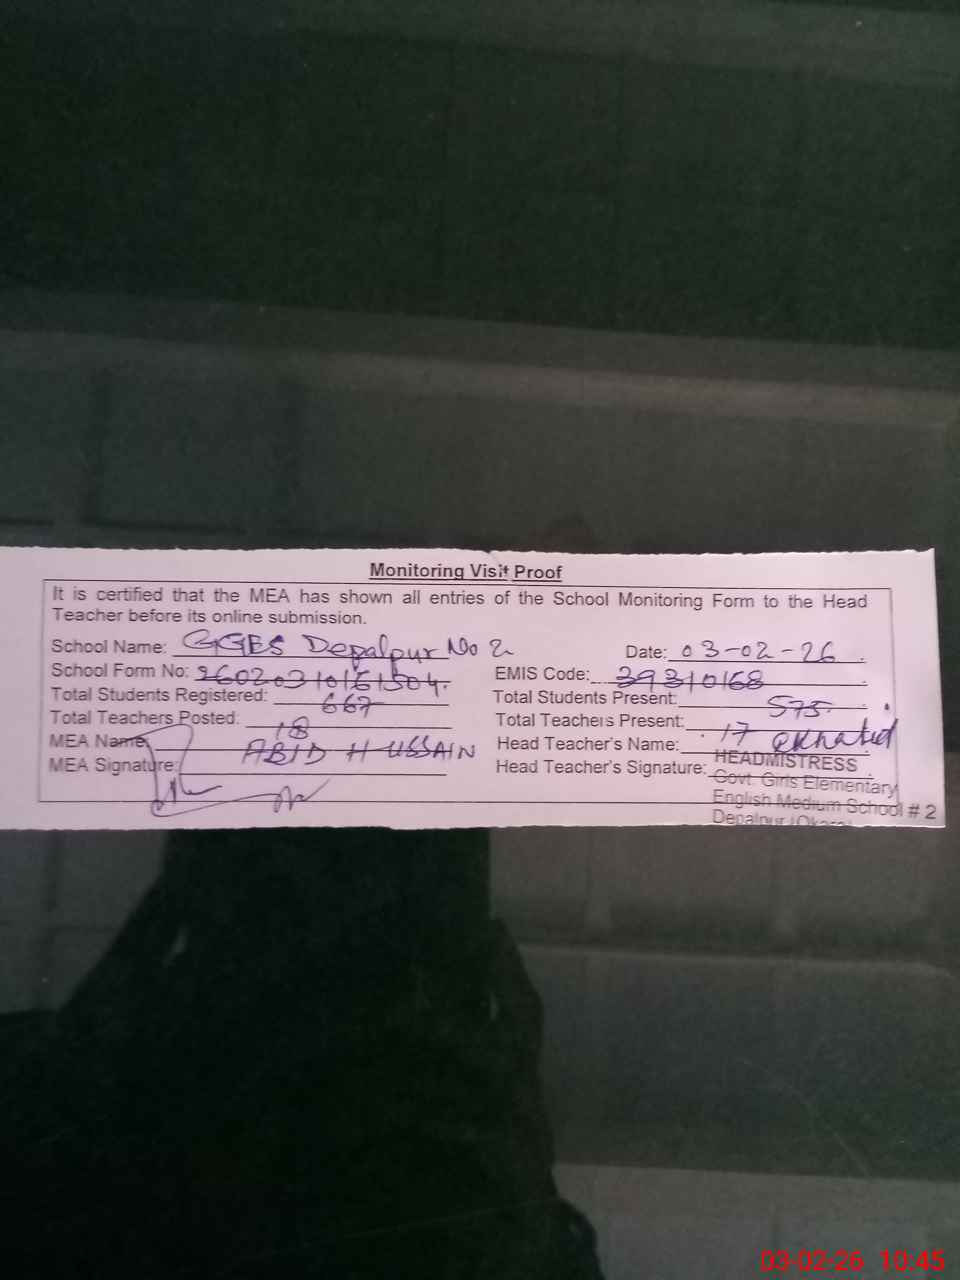 Monitoring Visit Proof
It is certified that the MEA has shown all entries of the School Monitoring Form to the Head
Teacher before its online submission.
School Name: GGES Depalpur No 2 Date: 03-02-26
School Form No: EMIS Code: 39310168
Total Students Registered: 667 Total Students Present: 575
Total Teachers Posted: 18 Total Teachers Present: 17
MEA Name: ABID HUSSAIN Head Teacher's Name:
MEA Signature: Head Teacher's Signature:
HEADMISTRESS
Govt. Girls Elementary
English Medium School # 2
Depalpur (Okara)
03-02-26 10:45